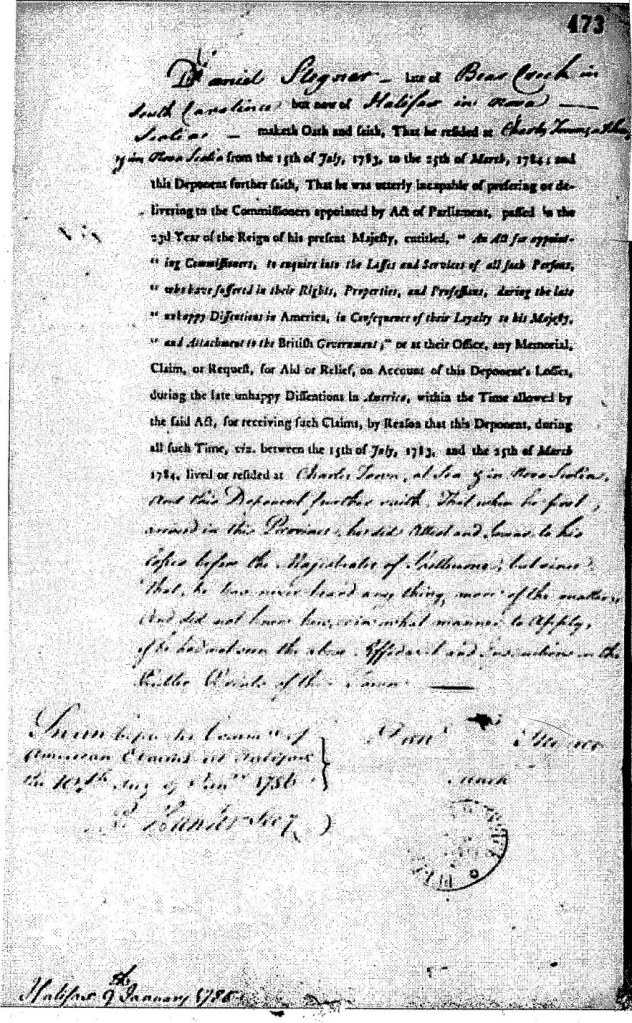 473
Daniel Stegner – late of Bear Creek in
South Carolina but now of Halifax in Nova
Scotia – maketh Oath and saith, That he resided at Charles Town, at Sea
& in Nova Scotia from the 15th of July, 1783, to the 25th of March, 1784; and
this Deponent further saith, That he was utterly incapable of preferring or de-
livering to the Commissioners appointed by Act of Parliament, passed in the
23d Year of the Reign of his present Majesty, entitled, " An Act for appoint-
" ing Commissioners, to enquire into the Losses and Services of all such Persons,
" who have suffered in their Rights, Properties, and Professions, during the late
" unhappy Dissentions in America, in Consequence of their Loyalty to his Majesty,
" and Attachment to the British Government;" or at their Office, any Memorial,
Claim, or Request, for Aid or Relief, on Account of this Deponent's Losses,
during the late unhappy Dissentions in America, within the Time allowed by
the said Act, for receiving such Claims, by Reason that this Deponent, during
all such Time, viz. between the 15th of July, 1783, and the 25th of March
1784, lived or resided at Charles Town, at Sea & in Nova Scotia.
And this Deponent further saith, That when he first
arrived in this Province, he did Attest and Swear to his
before the Magistrates of Shelburne; but since
that, he has never heard any thing more of the matter;
And did not know how, or in what manner to Apply,
if he had not seen the above Affidavit and Instructions in the
Public Prints of this Town
Sworn before the Comm of
American Claims at Halifax
the 10th day of Jan 1786
Hunter Secy
Dan
mark
Halifax 9th January 1786